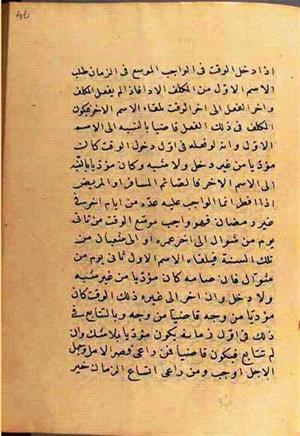 اذا دخل الوقت فى الواجب الموسع فى الزمان طلب
الاسم الاول من المكلف الادا فاذا لم يفعل المكلف
واخر الفعل الى اخر الوقت تلقاه الاسم الاخر فيكون
المكلف فى ذلك الفعل قاضيا بالنسبه الى الاسم
الاول وانه لو فعله فى اول دخول الوقت كان
مؤديا من غير دخل ولا شبه وكان مؤديا بالنسبه
الى الاسم الاخر فالصائم المسافر او المريض
اذا افطر انما الواجب عليه عدة من ايام اخر فى
غير رمضان فهو واجب موسع الوقت من ثانى
يوم من شوال الى اخر عمره او الى شعبان من
تلك السنة فيلقاه الاسم الاول ثانى يوم من
شوال فان صامه كان مؤديا من غير شبه
ولا دخل وان اخر الى غير ذلك الوقت كان
مؤديا من وجه قاضيا من وجه وبالتتابع فى
ذلك فى اول زمانه يكون مؤديا بلا شك وان
لم يتتابع فيكون قاضيا فمن راعى قصر الامل وجهل
الاجل اوجب ومن راعى اتساع الزمان خير